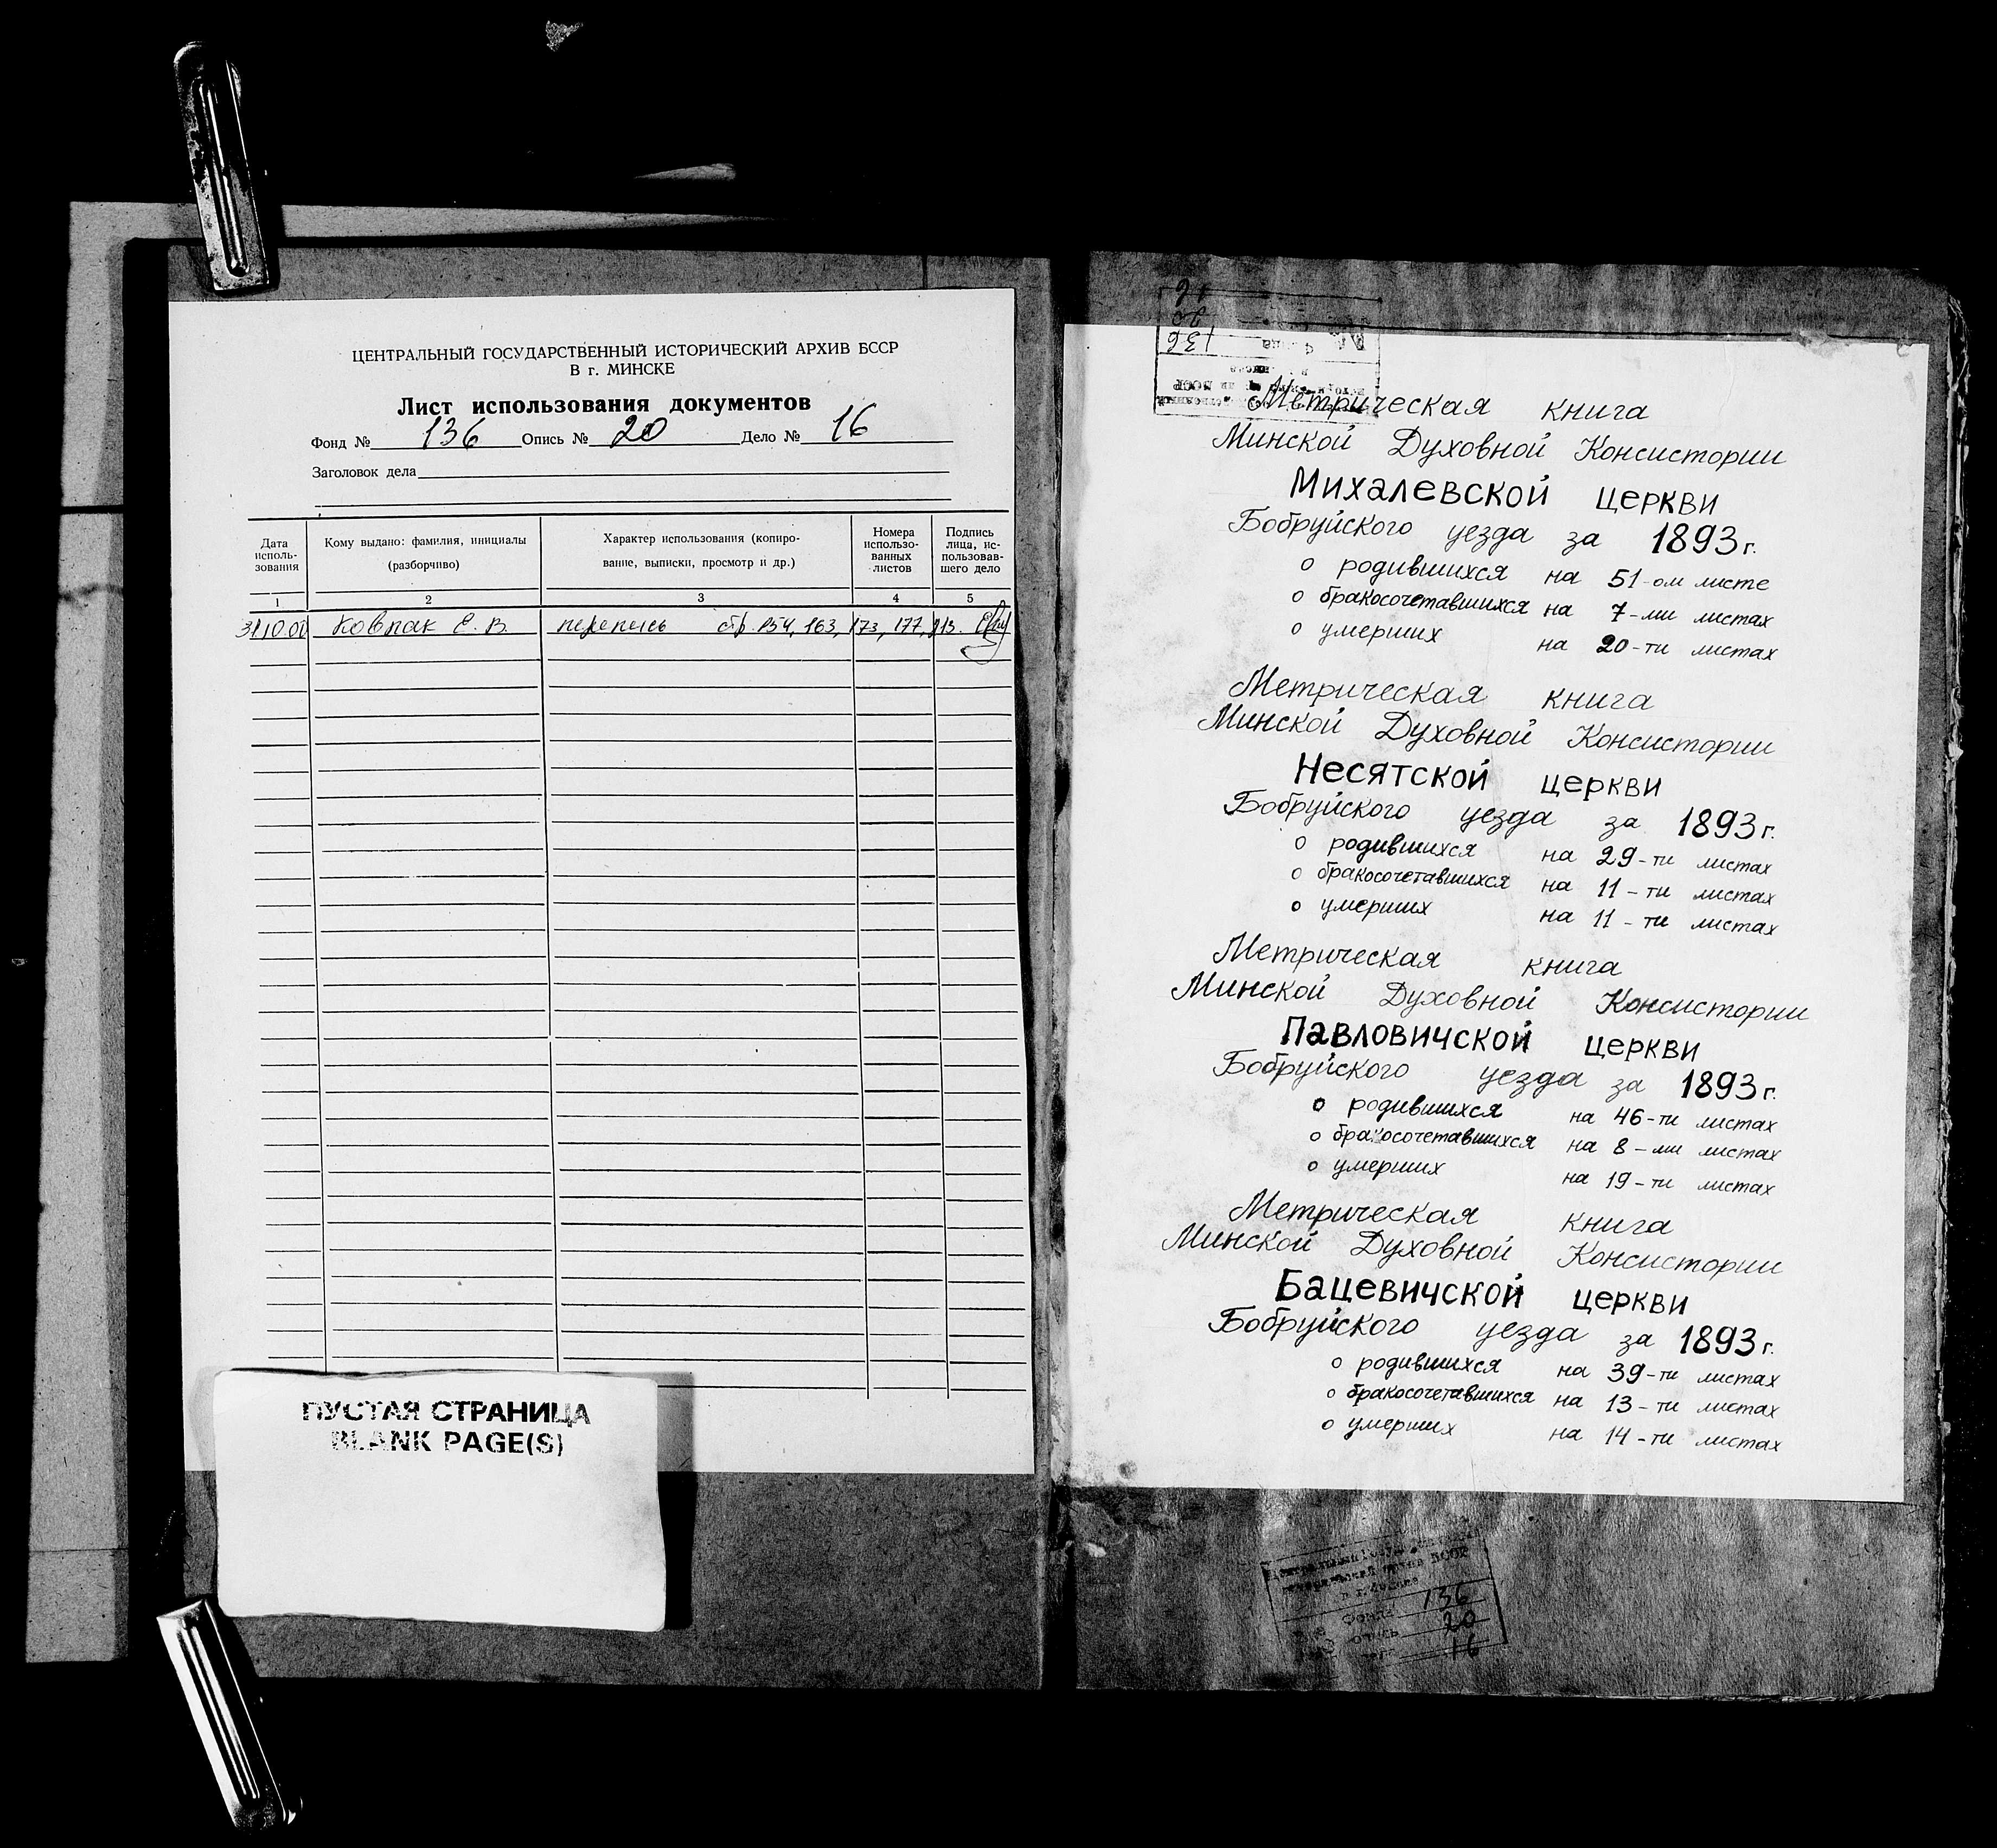 ЦЕНТРАЛЬНЫЙ ГОСУДАРСТВЕННЫЙ ИСТОРИЧЕСКИЙ АРХИВ БССР
В г. МИНСКЕ
Лист использования документов
Фонд № 136 Опись № 20 Дело № 16
Заголовок дела
Дата исполь-зования
Кому выдано: фамилия, инициалы (разборчиво)
Характер использования (копиро-вание, выписки, просмотр и др.)
Номера использо-ванных листов
Подпись лица, ис-пользовав-шего дело
1 2 3 4 5
31.10.00 Ковпак С. В. перепись стр. 154, 163, 173, 177, 213.
ПУСТАЯ СТРАНИЦА
BLANK PAGE(S)
136
20
16
Метрическая книга
Минской Духовной Консистории
Михалевской церкви
Бобруйского уезда за 1893 г.
о родившихся на 51-ом листе
о бракосочетавшихся на 7-ми листах
о умерших на 20-ти листах
Метрическая книга
Минской Духовной Консистории
Несятской церкви
Бобруйского уезда за 1893 г.
о родившихся на 29-ти листах
о бракосочетавшихся на 11-ти листах
о умерших на 11-ти листах
Метрическая книга
Минской Духовной Консистории
Павловичской церкви
Бобруйского уезда за 1893 г.
о родившихся на 46-ти листах
о бракосочетавшихся на 8-ми листах
о умерших на 19-ти листах
Метрическая книга
Минской Духовной Консистории
Бацевичской церкви
Бобруйского уезда за 1893 г.
о родившихся на 39-ти листах
о бракосочетавшихся на 13-ти листах
о умерших на 14-ти листах
архив БССР
в г. Минске
Фонд 136
опись 20
16